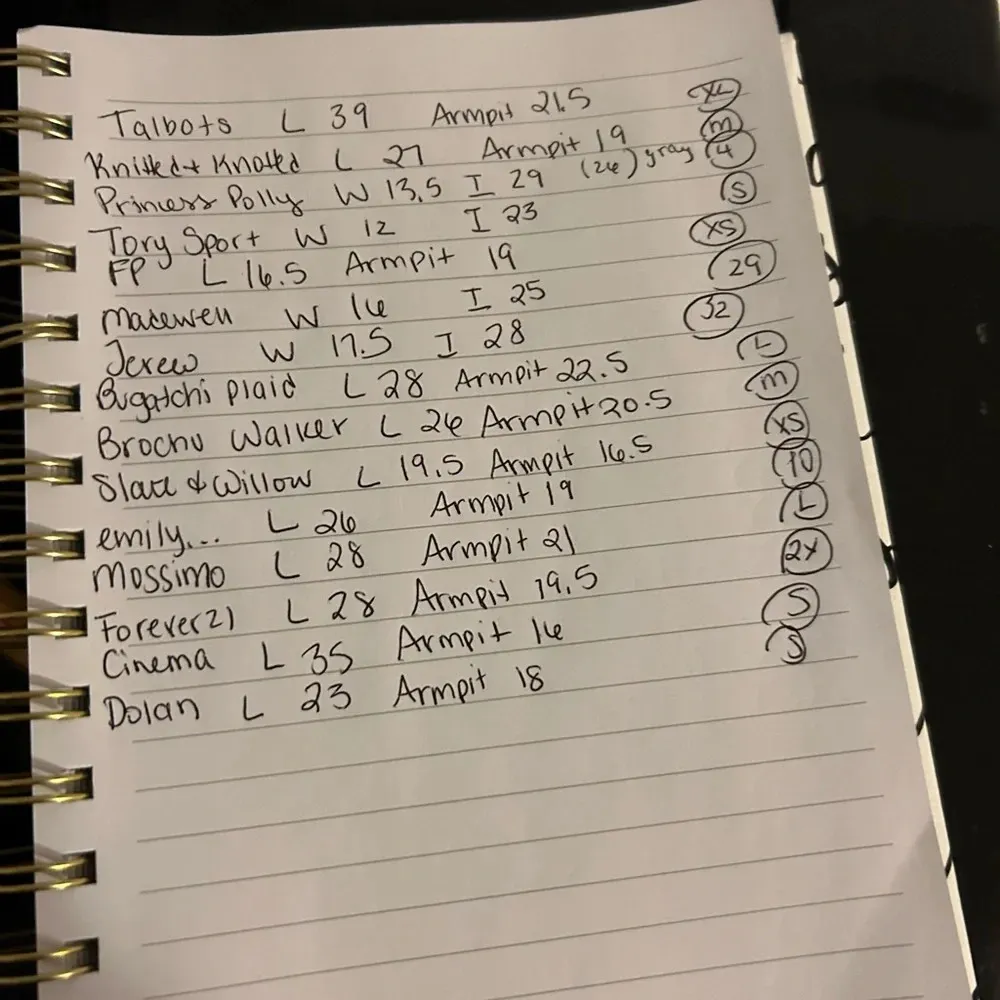 Talbots L 39 Armpit 21.5 XL
Knitted + Knotted L 27 Armpit 19 M
Princess Polly W 13.5 I 29 (26) gray 4
Tory Sport W 12 I 23 S
FP L 16.5 Armpit 19 XS
Madewell W 16 I 25 29
Jcrew W 17.5 I 28 32
Bugatchi plaid L 28 Armpit 22.5 L
Brochu Walker L 26 Armpit 20.5 M
Slate & Willow L 19.5 Armpit 16.5 XS
emily... L 26 Armpit 19 10
Mossimo L 28 Armpit 21 L
Forever 21 L 28 Armpit 19.5 2X
Cinema L 35 Armpit 16 S
Dolan L 23 Armpit 18 S